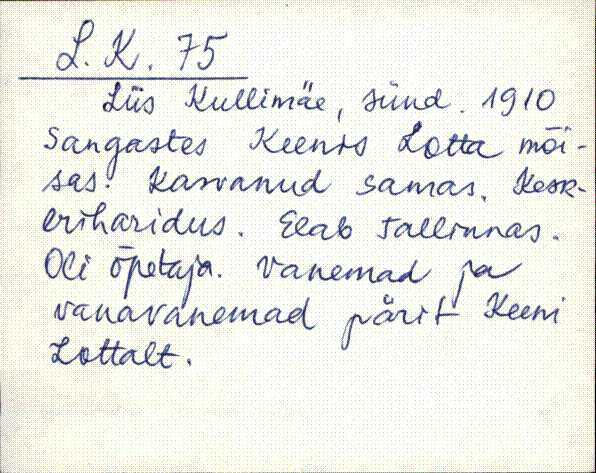 L. K. 75
Liis Kullimäe, sünd. 1910
Sangastes Keenis Lotta mõi-
sas. Kasvanud samas. Kesk-
eriharidus. Elab Tallinnas.
Oli õpetaja. Vanemad ja
vanavanemad pärit Keeni
Lottalt.